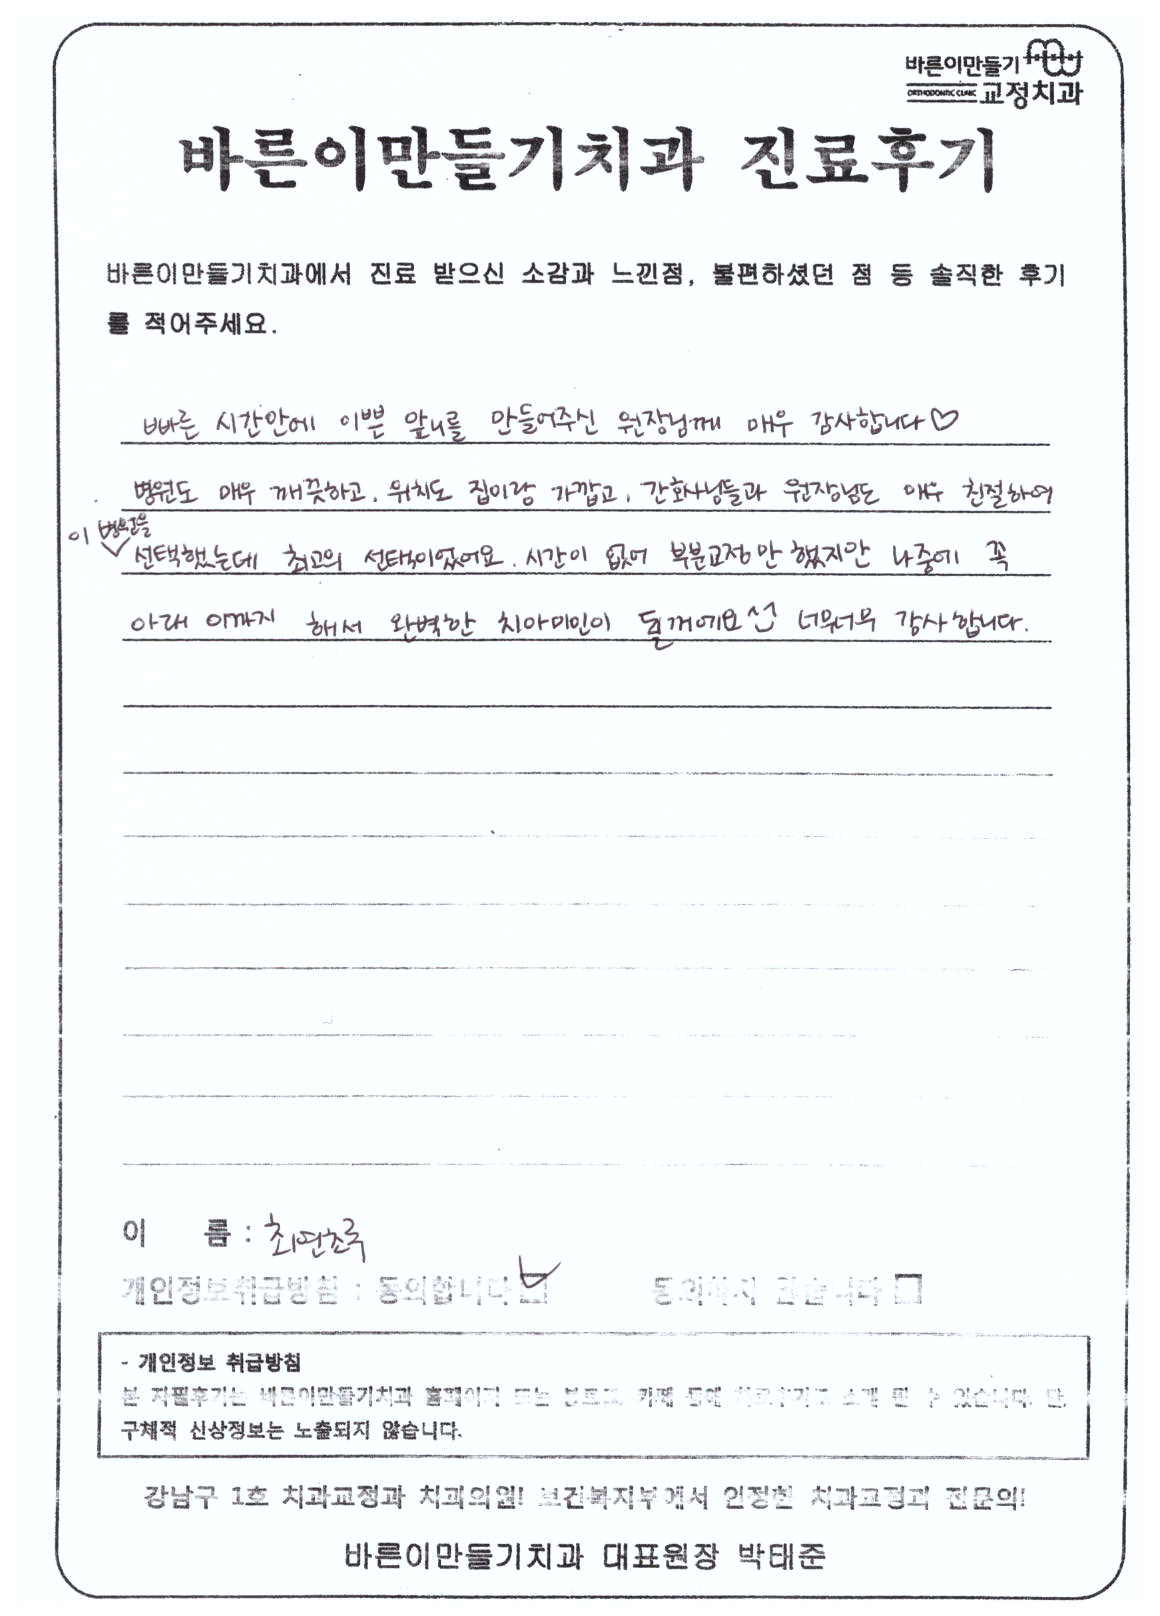 바른이만들기
ORTHODONTIC CLINIC 교정치과
바른이만들기치과 진료후기
바른이만들기치과에서 진료 받으신 소감과 느낀점, 불편하셨던 점 등 솔직한 후기
를 적어주세요.
빠른 시간안에 이쁜 앞니를 만들어주신 원장님께 매우 감사합니다♡
병원도 매우 깨끗하고, 위치도 집이랑 가깝고, 간호사님들과 원장님도 매우 친절하여
이 병원을
선택했는데 최고의 선택이었어요. 시간이 없어 부분교정만 했지만 나중에 꼭
아래 이까지 해서 완벽한 치아미인이 될꺼에요 너무너무 감사합니다.
이 름 : 최연초록
개인정보취급방침 : 동의합니다 동의하지 않습니다
- 개인정보 취급방침
본 자필후기는 바른이만들기치과 홈페이지 또는 블로그, 카페 등에 소개 될 수 있습니다. 단,
구체적 신상정보는 노출되지 않습니다.
강남구 1호 치과교정과 치과의원! 보건복지부에서 인정한 치과교정과 전문의!
바른이만들기치과 대표원장 박태준